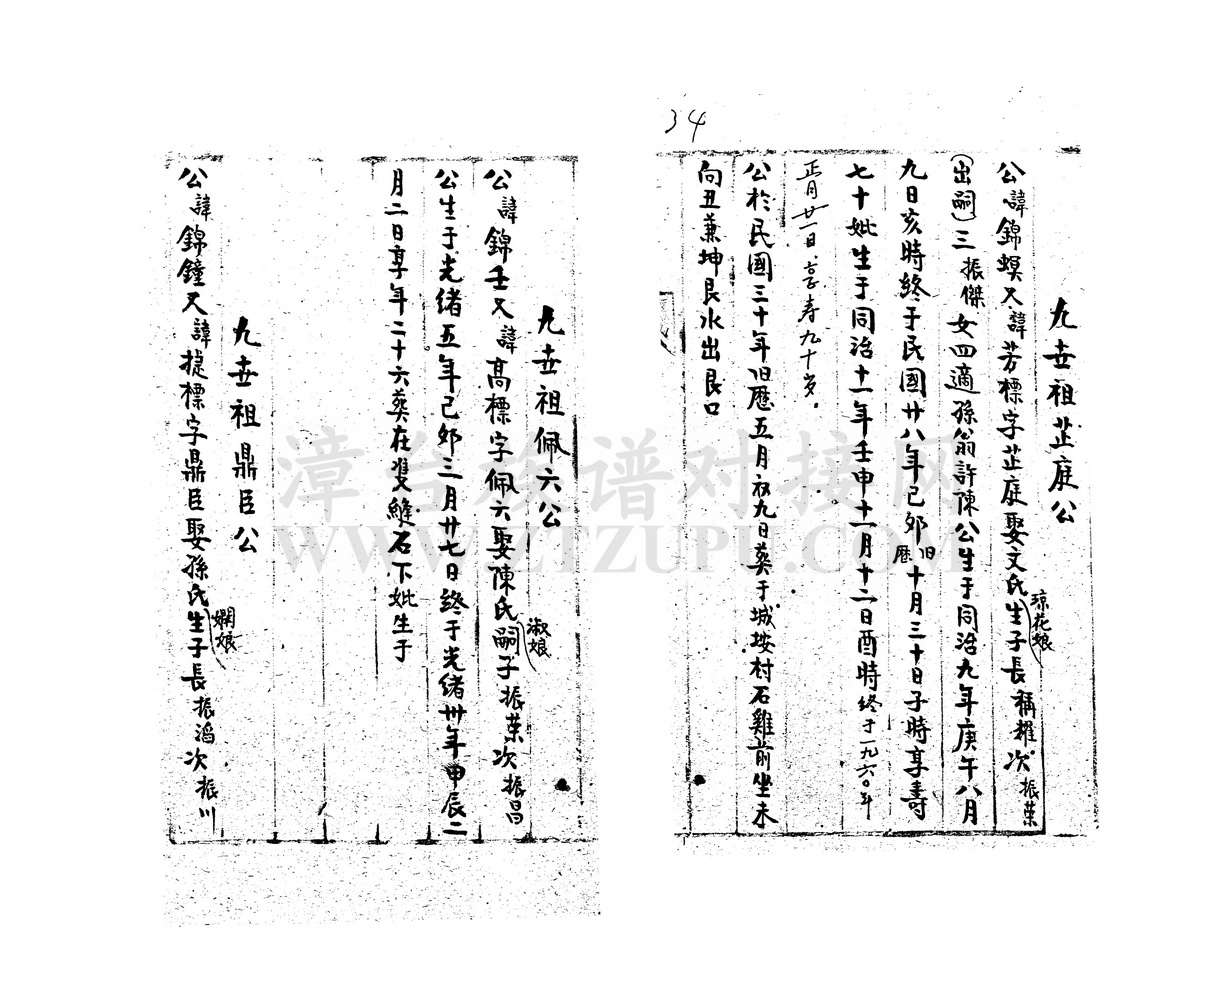 34
九世祖芷庭公
公諱錦螟又諱芳標字芷庭娶文氏琼花娘生子長稱耀次振葉
(出嗣)三振傑女四適孫翁許陳公生于同治九年庚午八月
九日亥時終于民國廿八年己卯旧歷十月三十日子時享壽
七十妣生于同治十一年壬申十一月十二日酉時終于一九六〇年
正月廿一日.享寿九十岁.
公於民國三十年旧歷五月初九日葬于城垵村石雞前坐未
向丑兼坤艮水出艮口
九世祖佩六公
公諱錦壬又諱高標字佩六娶陳氏淑娘嗣子振葉次振昌
公生于光緒五年己卯三月廿七日終于光緒卅年甲辰二
月二日享年二十六葬在雙維石下妣生于
九世祖鼎臣公
公諱錦鐘又諱捷標字鼎臣娶孫氏嫻娘生子長振滔次振川
漳台族谱对接网
WWW.ZTZUPU.COM